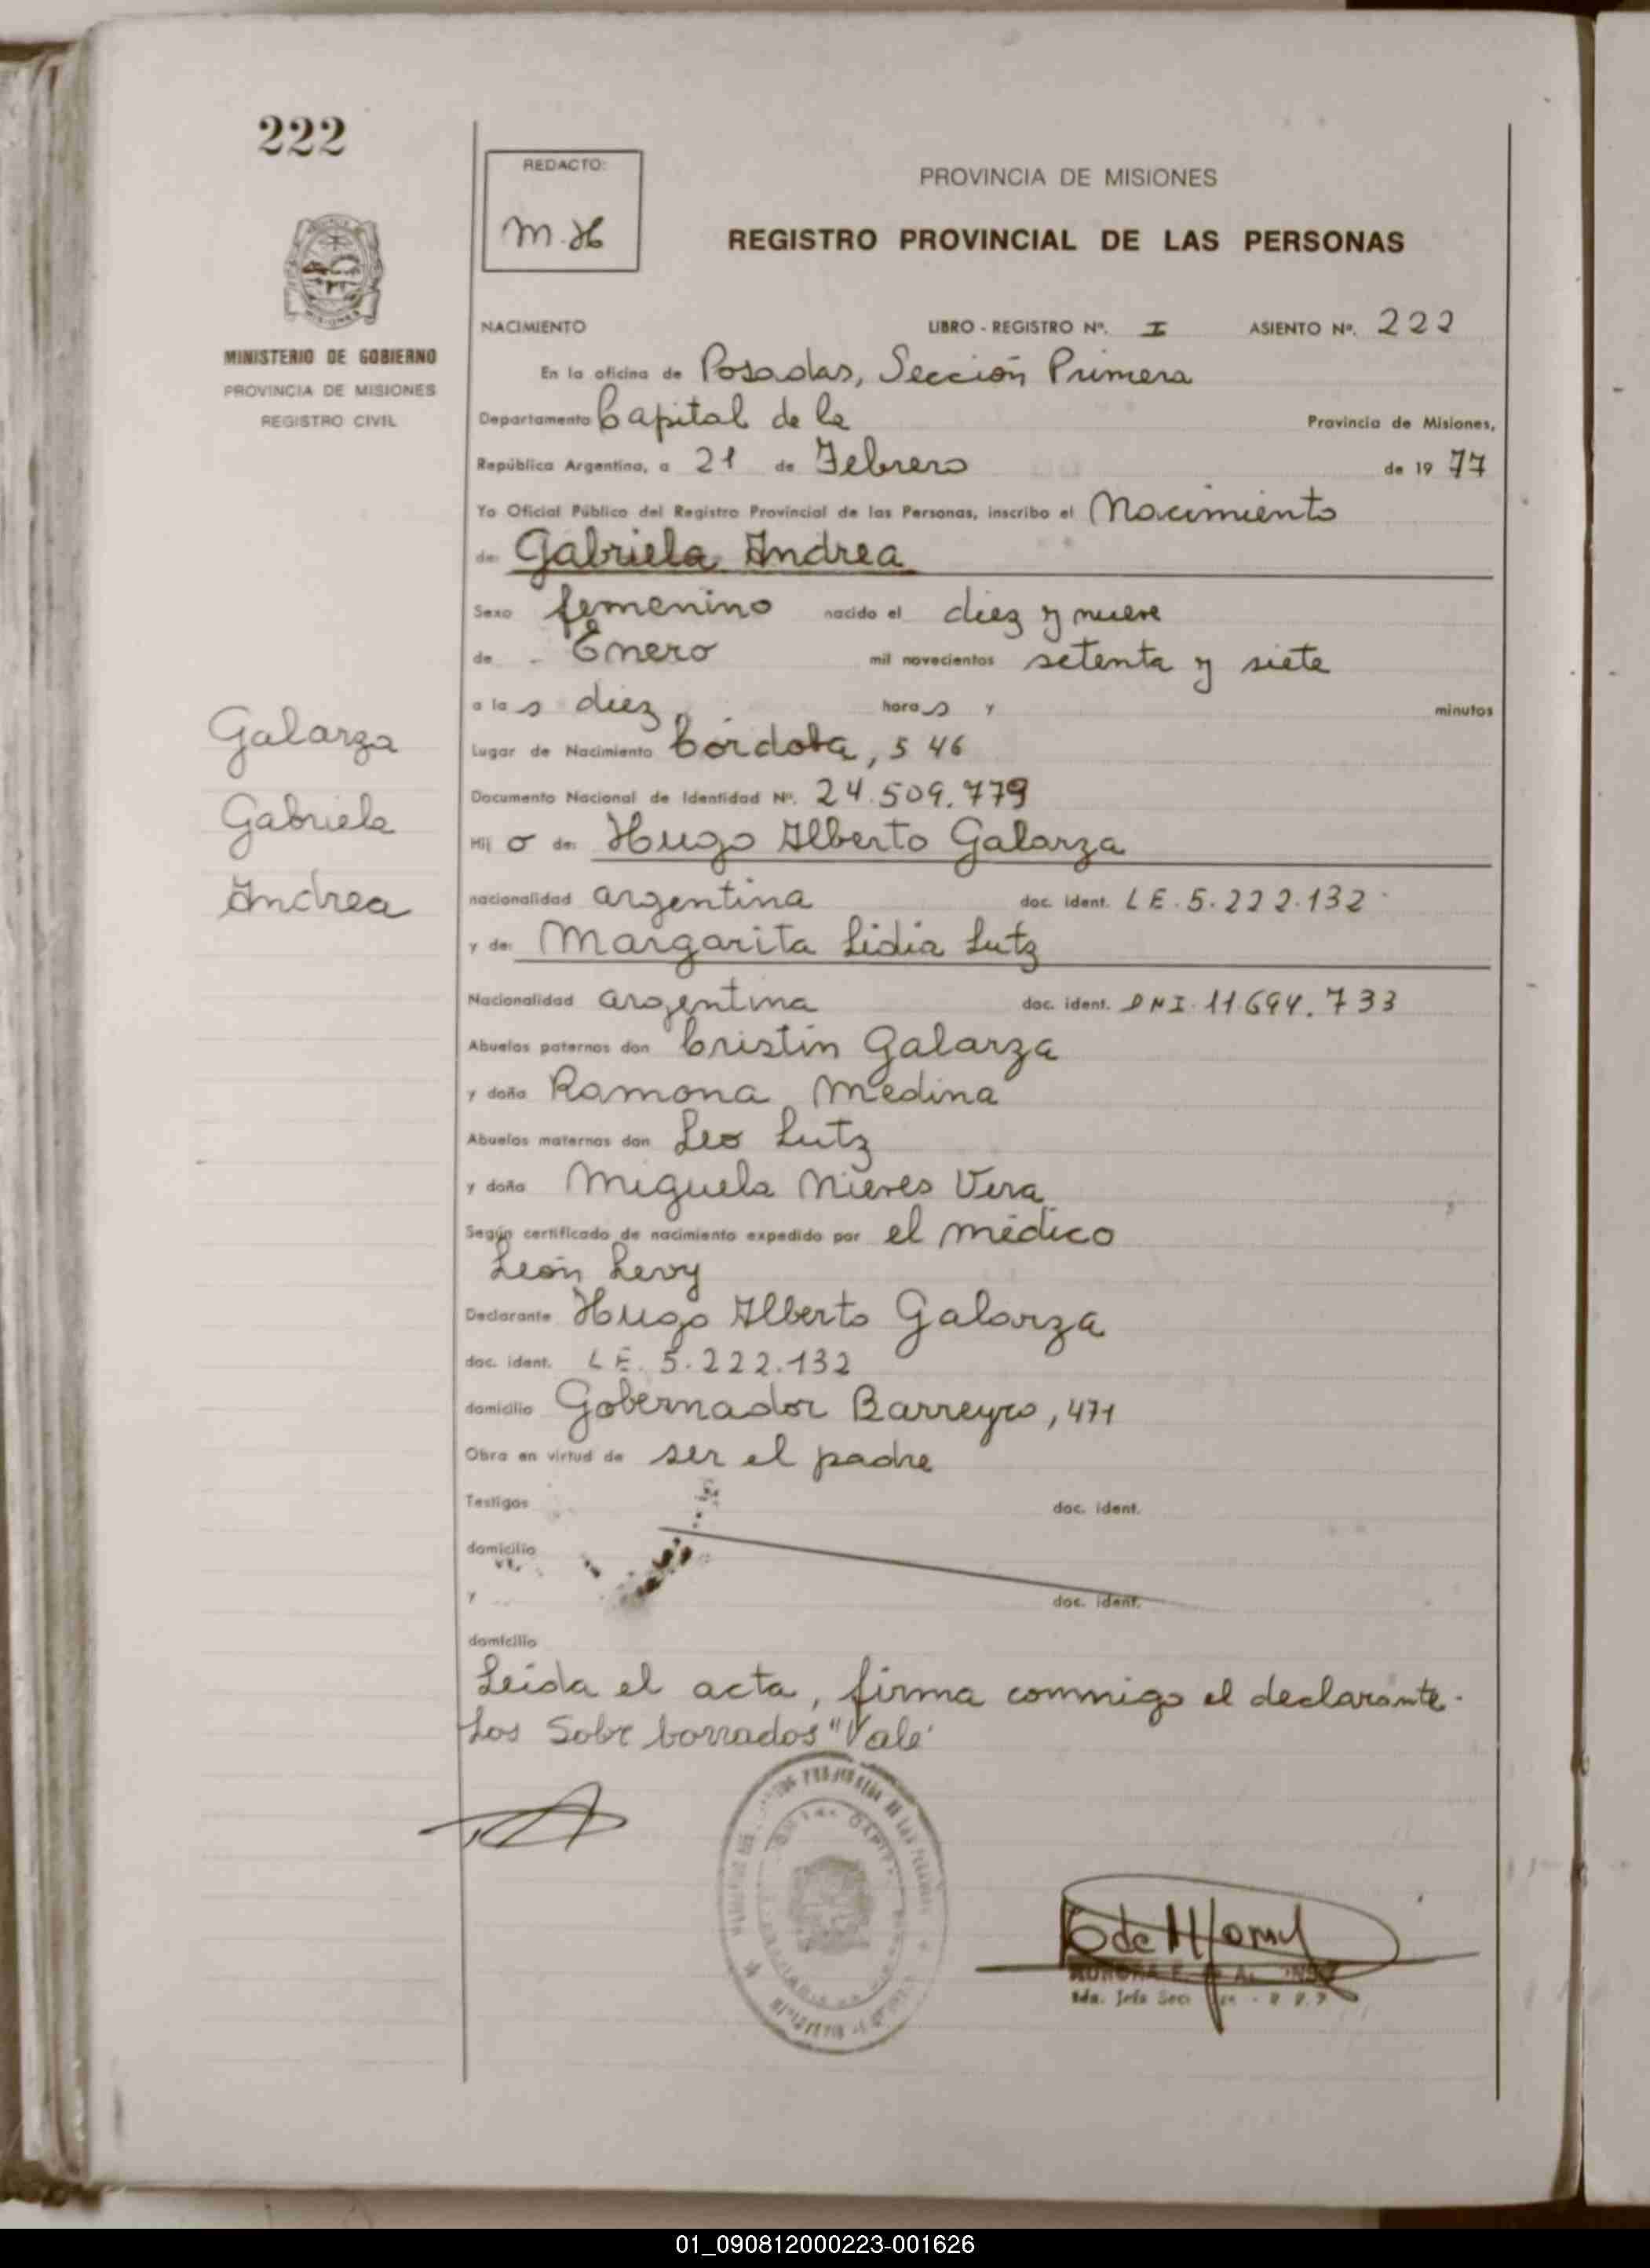 222
REDACTO:
M.H
PROVINCIA DE MISIONES
REGISTRO PROVINCIAL DE LAS PERSONAS
MISIONES
MINISTERIO DE GOBIERNO
PROVINCIA DE MISIONES
REGISTRO CIVIL
NACIMIENTO LIBRO - REGISTRO Nº. I ASIENTO Nº. 222
En la oficina de Posadas, Sección Primera
Departamento Capital de la Provincia de Misiones,
República Argentina, a 21 de Febrero de 19 77
Yo Oficial Público del Registro Provincial de las Personas, inscribo el Nacimiento
de: Gabriela Andrea
Sexo femenino nacido el diez y nueve
de - Enero mil novecientos setenta y siete
a la s diez hora s y minutos
Lugar de Nacimiento Córdoba, 546
Documento Nacional de Identidad Nº. 24.509.779
Hij o de: Hugo Alberto Galarza
nacionalidad argentina doc. ident. LE. 5.222.132
y de: Margarita Lidia Lutz
Nacionalidad argentina doc. ident. DNI. 11.694.733
Abuelos paternos don Cristin Galarza
y doña Ramona Medina
Abuelos maternos don Leo Lutz
y doña Miguela Nieves Vera
Según certificado de nacimiento expedido por el médico
León Levy
Declarante Hugo Alberto Galarza
doc. ident. LE. 5.222.132
domicilio Gobernador Barreyro, 471
Obra en virtud de ser el padre
Testigos doc. ident.
domicilio
y doc. ident.
domicilio
Leida el acta, firma conmigo el declarante.
Los Sobre borrados "Vale"
Galarza
Gabriela
Andrea
01_090812000223-001626